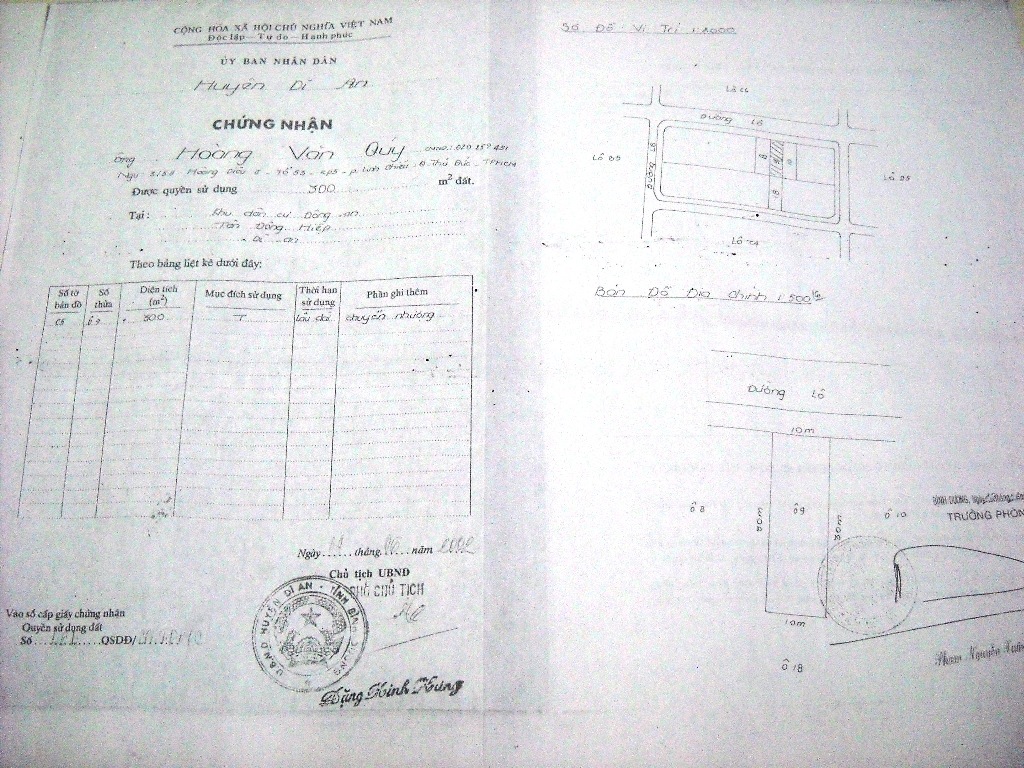 CỘNG HÒA XÃ HỘI CHỦ NGHĨA VIỆT NAM
Độc lập - Tự do - Hạnh phúc
ỦY BAN NHÂN DÂN
Huyện Dĩ An
CHỨNG NHẬN
Ông Hoàng Văn Quý
Hoàng Diệu Tổ 55 - KP5 - P. Linh Chiểu - Q. Thủ Đức - TPHCM
Được quyền sử dụng 300 m² đất.
Tại: Khu dân cư Đông An
Tân Đông Hiệp
Dĩ An
Theo bảng liệt kê dưới đây:
Số tờ bản đồ Số thửa Diện tích (m²) Mục đích sử dụng Thời hạn sử dụng Phần ghi thêm
C5 Ô9 300 T Lâu dài chuyển nhượng
Ngày tháng năm 2002
Chủ tịch UBND
PHÓ CHỦ TỊCH
U.B.N.D HUYỆN DĨ AN - TỈNH BÌNH DƯƠNG
Đặng Minh Hưng
Vào sổ cấp giấy chứng nhận
Quyền sử dụng đất
Số QSDĐ/
Sơ Đồ Vị Trí
Đường Lô
Đường Lô
8 9 10
18
Lô B5
Lô D5
Lô C4
Bản Đồ Địa Chính 1:500
Đường Lô
10m
Ô 8 30m Ô 9 30m Ô 10
10m
Ô 18
BÌNH DƯƠNG, ngày
TRƯỞNG PHÒN
Phạm Nguyễn